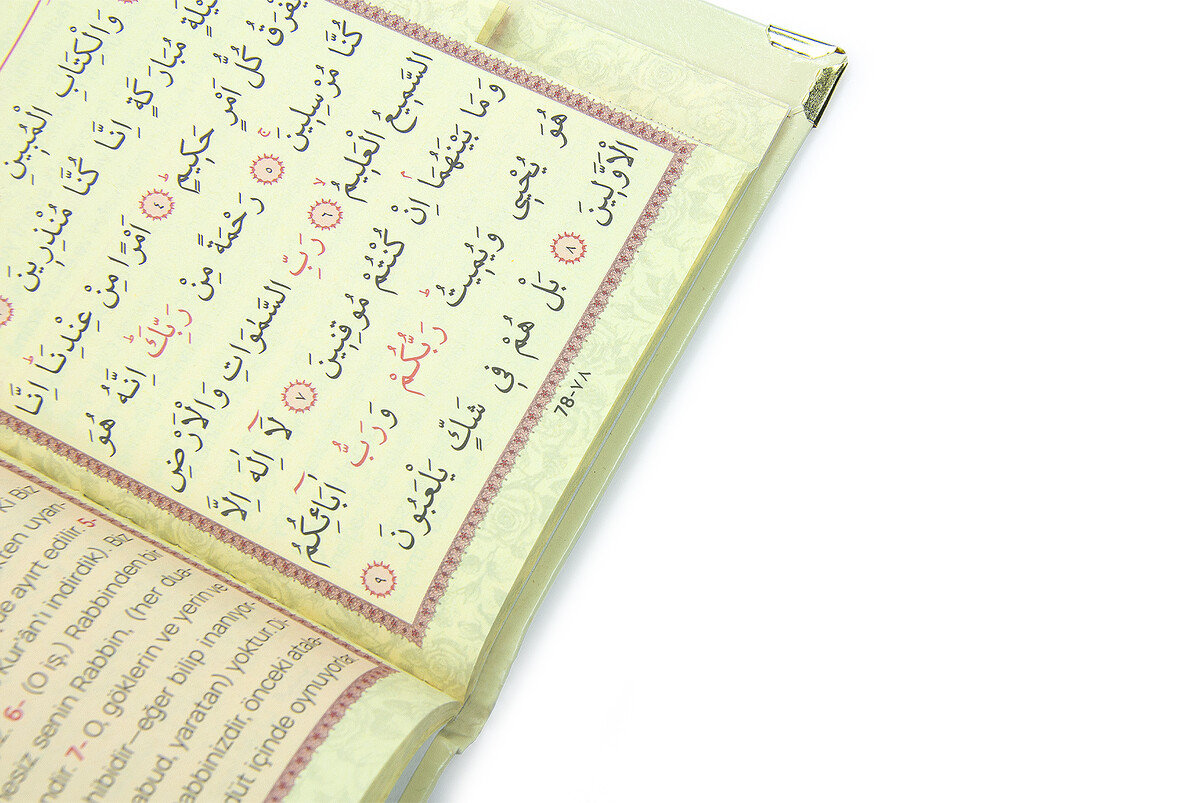 وَالْكِتَابِ الْمُبِينِ
مُبَارَكَةٍ اِنَّا كُنَّا مُنْذِرِينَ
يُفْرَقُ كُلُّ اَمْرٍ حَكِيمٍ ٤ اَمْرًا مِنْ عِنْدِنَاۜ اِنَّا
كُنَّا مُرْسِلِينَۚ ٥ رَحْمَةً مِنْ رَبِّكَۜ اِنَّهُ هُوَ
السَّمِيعُ الْعَلِيمُۙ ٦ رَبِّ السَّمٰوَاتِ وَالْاَرْضِ
وَمَا بَيْنَهُمَاۢ اِنْ كُنْتُمْ مُوقِنِينَ ٧ لَٓا اِلٰهَ اِلَّا
هُوَ يُحْيِى وَيُمِيتُۜ رَبُّكُمْ وَرَبُّ اٰبَٓائِكُمُ
الْاَوَّلِينَ ٨ بَلْ هُمْ فِى شَكٍّ يَلْعَبُونَ ٩
78-٧٨
Ki Biz
uyan-
de ayırt edilir. 5-
Kur'ân'ı indirdik). Biz
6- (O iş,) Rabbinden bir
senin Rabbin, (her dua-
7- O, göklerin ve yerin ve
hibidir—eğer bilip inanıyor-
abud, yaratan) yoktur. Di-
abbinizdir, önceki atala-
düt içinde oynuyorlar.